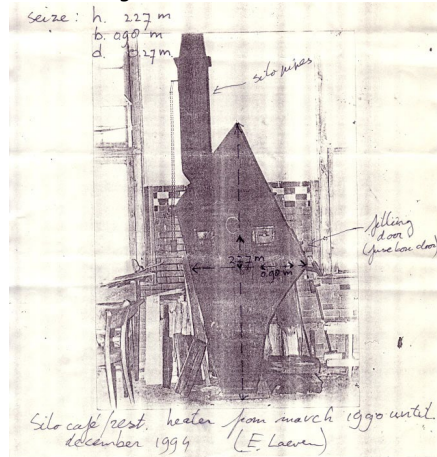 seize : h. 2.27 m
b. 0.98 m
d. 0.27 m
silo pipes
filling
door
(
door)
2.27 m
0.98 m
Silo café/rest. heater from march 1990 until
december 1994 (E. Laeven)